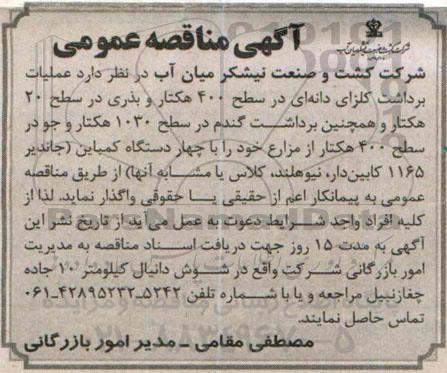 آگهی مناقصه عمومی
شرکت کشت و صنعت نیشکر میان آب در نظر دارد عملیات
برداشت کلزای دانه‌ای در سطح ۴۰۰ هکتار و بذری در سطح ۲۰
هکتار و همچنین برداشت گندم در سطح ۱۰۳۰ هکتار و جو در
سطح ۴۰۰ هکتار از مزارع خود را با چهار دستگاه کمباین (جاندیر
۱۱۶۵ کابین‌دار، نیوهلند، کلاس یا مشابه آنها) از طریق مناقصه
عمومی به پیمانکار اعم از حقیقی یا حقوقی واگذار نماید. لذا از
کلیه افراد واجد شرایط دعوت به عمل می آید از تاریخ نشر این
آگهی به مدت ۱۵ روز جهت دریافت اسناد مناقصه به مدیریت
امور بازرگانی شرکت واقع در شوش دانیال کیلومتر ۱۰ جاده
چغازنبیل مراجعه و یا با شماره تلفن ۵۲۴۲-۴۲۸۹۵۲۳۲-۰۶۱
تماس حاصل نمایند.
مصطفی مقامی - مدیر امور بازرگانی